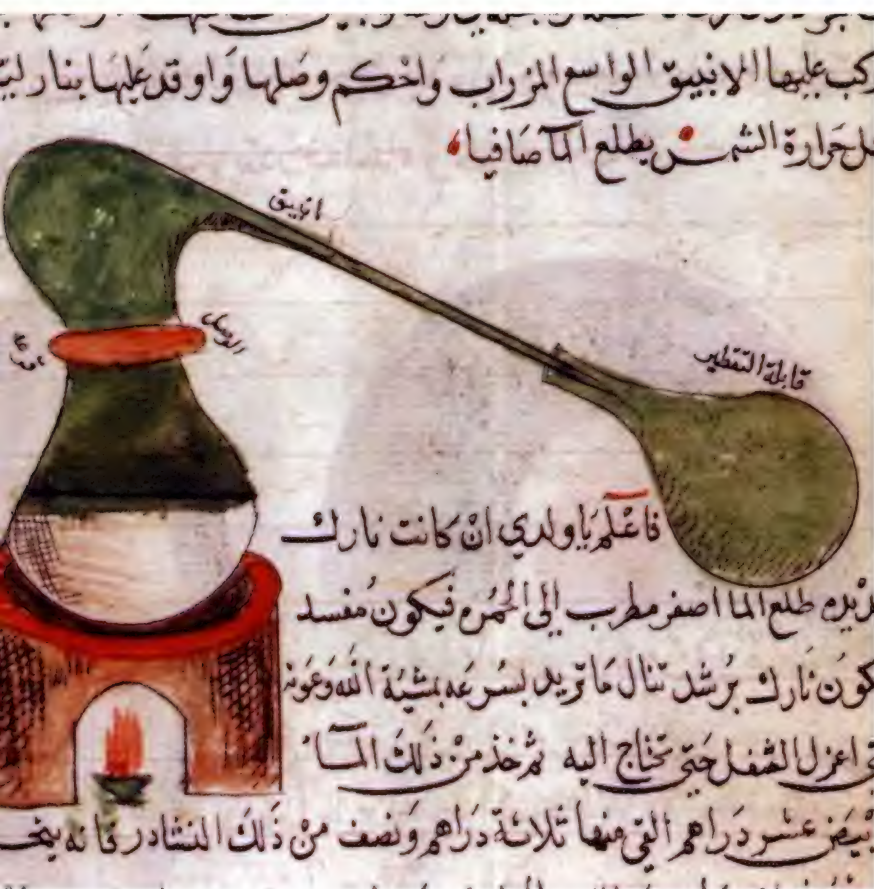 ركب عليها الانبيق الواسع المزراب واحكم وصلها واوقد عليها بنار
حرارة الشمس يطلع المآ صافيا
انبيق
الوصل
قابلة التقطير
فاعْلم يا ولدي ان كانت نارك
طلع الما اصفر مطرب إلى الحمره فيكون مُفسد
نارك برُشد تنال مَا تريد بسُرعَه بمشيّة الله وَعَونه
اعزل الشفل حَتى تحتاج اليه ثم خذ من ذلكَ المآء
عشر دَراهم القى منها ثلاثة دَراهم وَنصف من ذَلكَ النشادر فانه